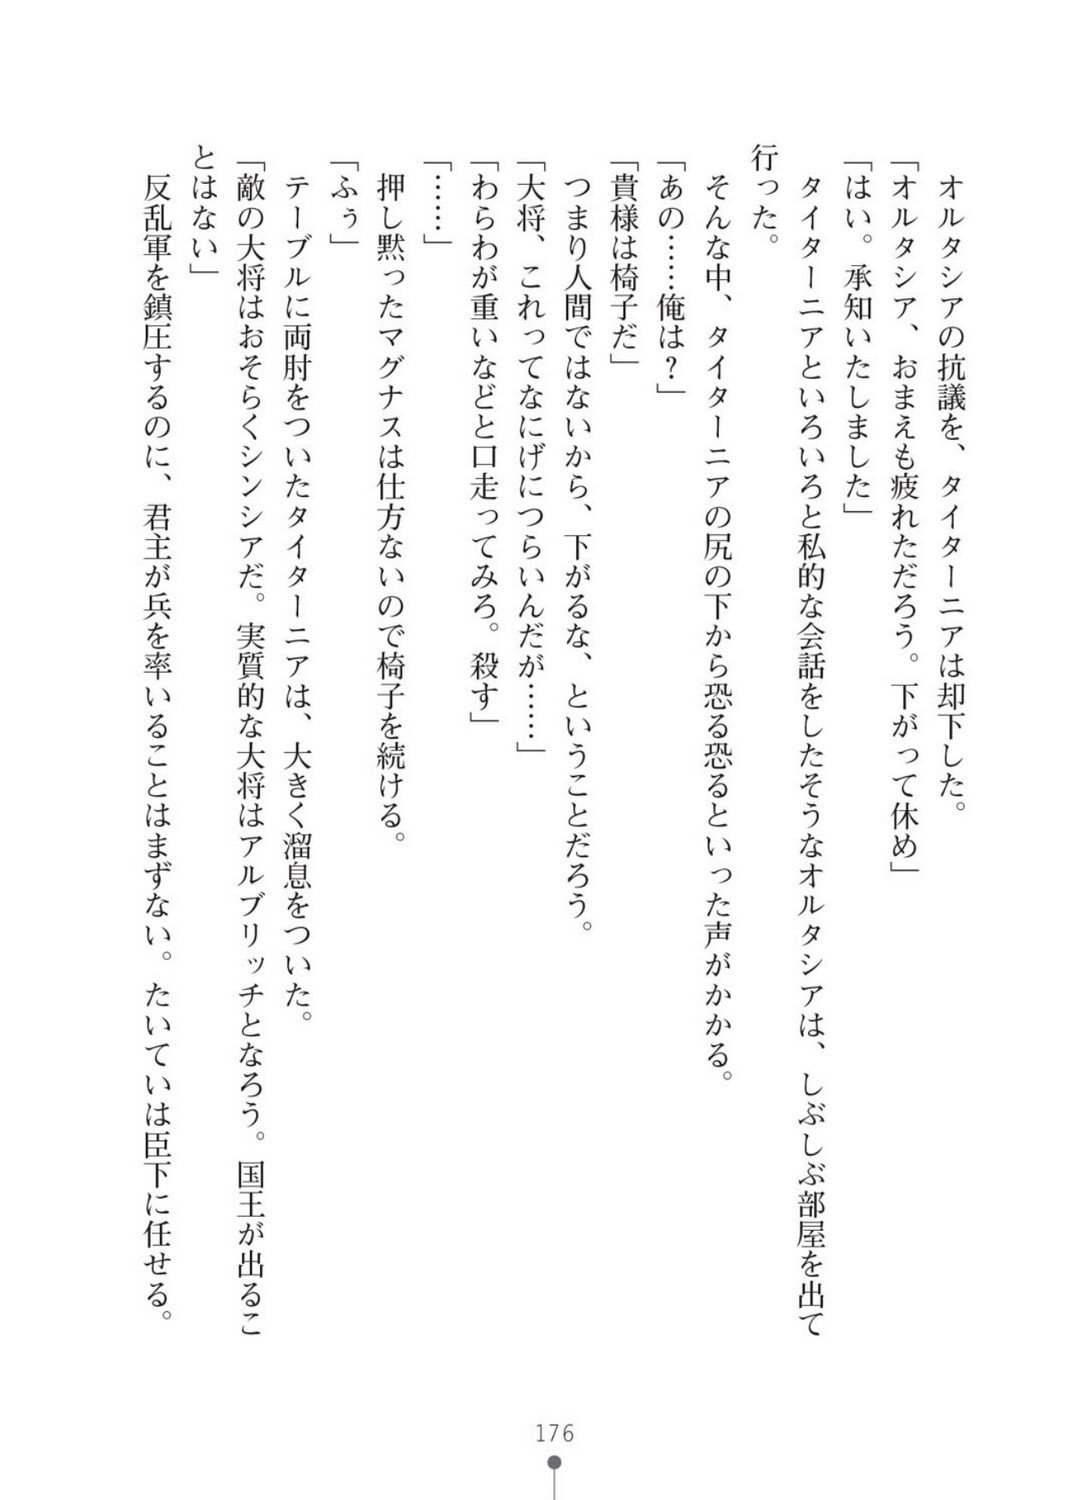 オルタシアの抗議を、タイターニアは却下した。
「オルタシア、おまえも疲れただろう。下がって休め」
「はい。承知いたしました」
タイターニアといろいろと私的な会話をしたそうなオルタシアは、しぶしぶ部屋を出て
行った。
そんな中、タイターニアの尻の下から恐る恐るといった声がかかる。
「あの……俺は？」
「貴様は椅子だ」
つまり人間ではないから、下がるな、ということだろう。
「大将、これってなにげにつらいんだが……」
「わらわが重いなどと口走ってみろ。殺す」
「……」
押し黙ったマグナスは仕方ないので椅子を続ける。
「ふぅ」
テーブルに両肘をついたタイターニアは、大きく溜息をついた。
「敵の大将はおそらくシンシアだ。実質的な大将はアルブリッチとなろう。国王が出るこ
とはない」
反乱軍を鎮圧するのに、君主が兵を率いることはまずない。たいていは臣下に任せる。
176